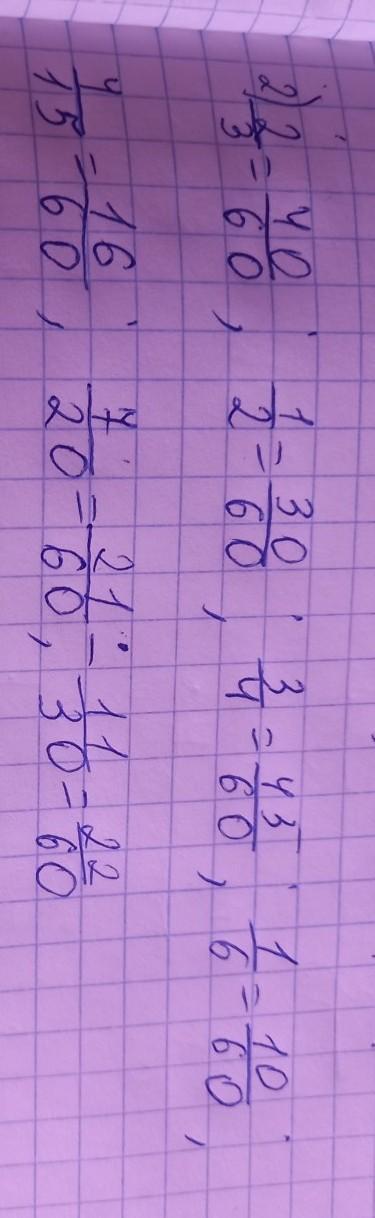 2) 2/3 = 40/60 ; 1/2 = 30/60 ; 3/4 = 45/60 ; 1/6 = 10/60 ;
4/15 = 16/60 ; 7/20 = 21/60 ; 11/30 = 22/60